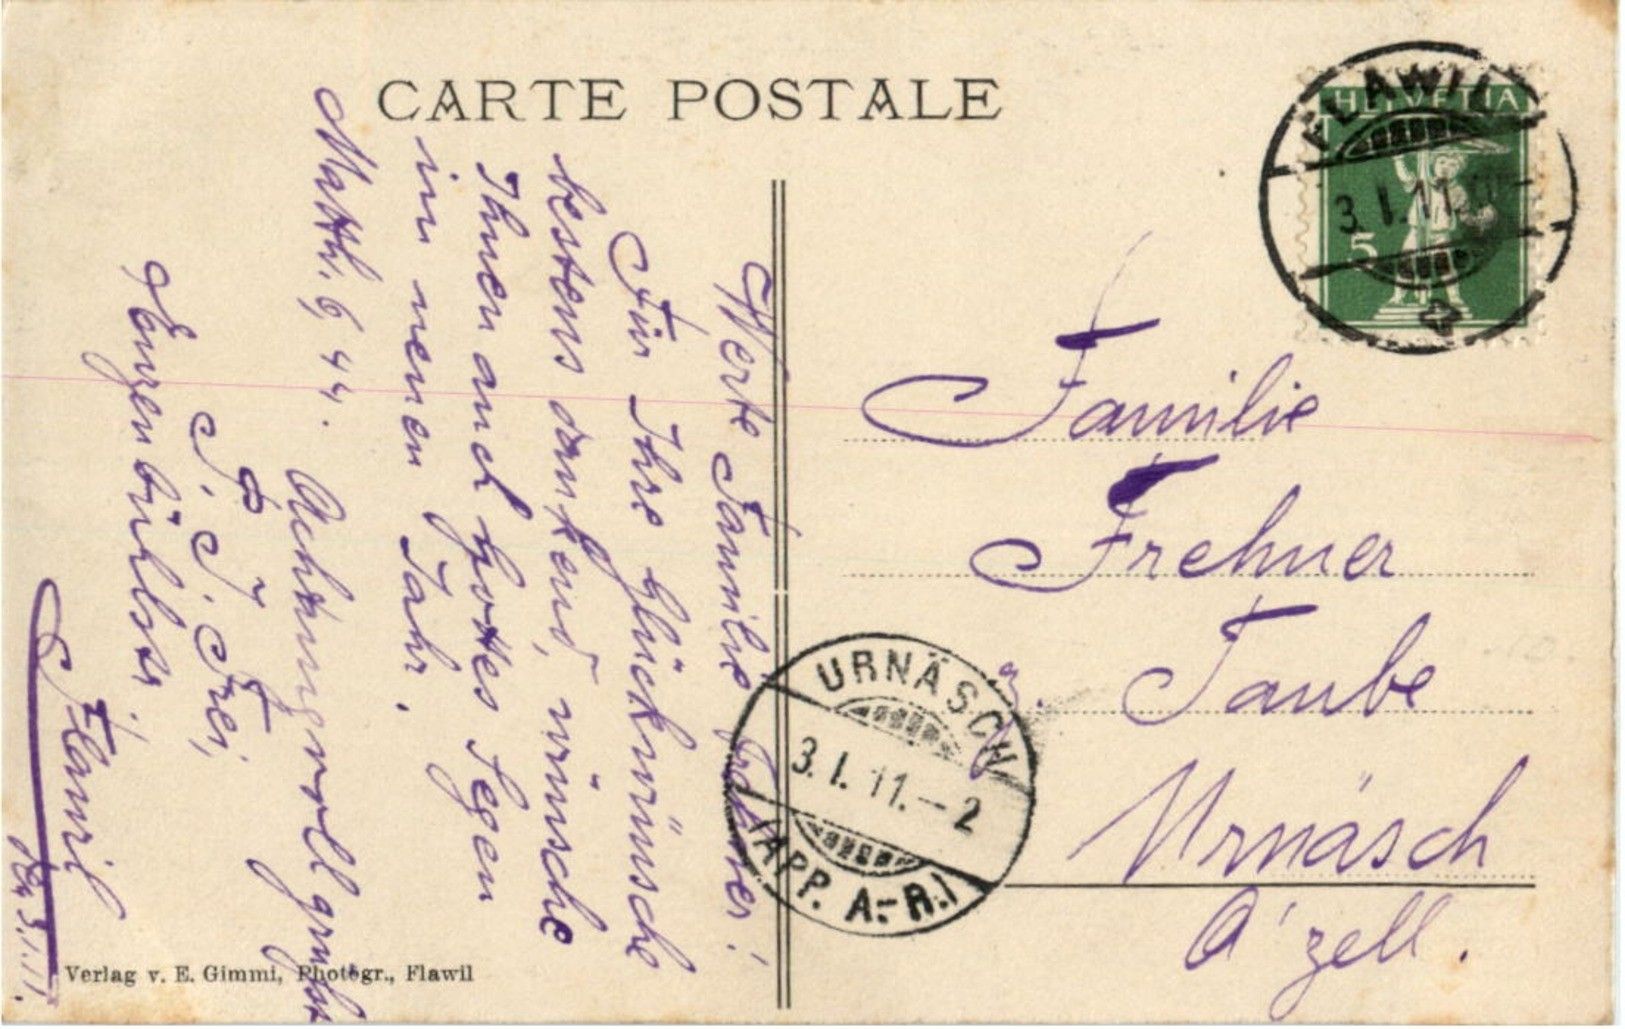 CARTE POSTALE
Werte Familie Frehner!
Für Ihre Glückwünsche
bestens dankend, wünsche
Ihnen auch Gottes Segen
im neuen Jahr.
Matth. 6 44.
Achtungsvoll grüsst
J. J. Frei,
Flawil
3.1.11.
Verlag v. E. Gimmi, Photogr., Flawil
HELVETIA
5
FLAWIL
3.I.11.
Familie
Frehner
z. Taube
Urnäsch
A'zell.
URNÄSCH
3.I.11.-2
(APP. A.-R.)